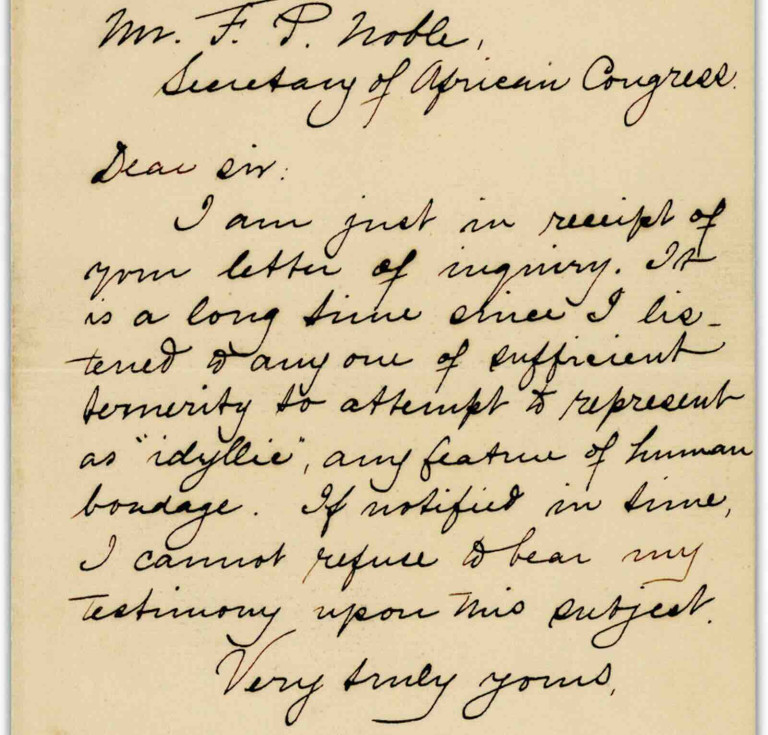 Mr. F. P. Noble,
Secretary of African Congress.
Dear sir:
I am just in receipt of
your letter of inquiry. It
is a long time since I lis-
tened to any one of sufficient
temerity to attempt to represent
as "idyllic", any feature of human
bondage. If notified in time,
I cannot refuse to bear my
testimony upon this subject.
Very truly yours,